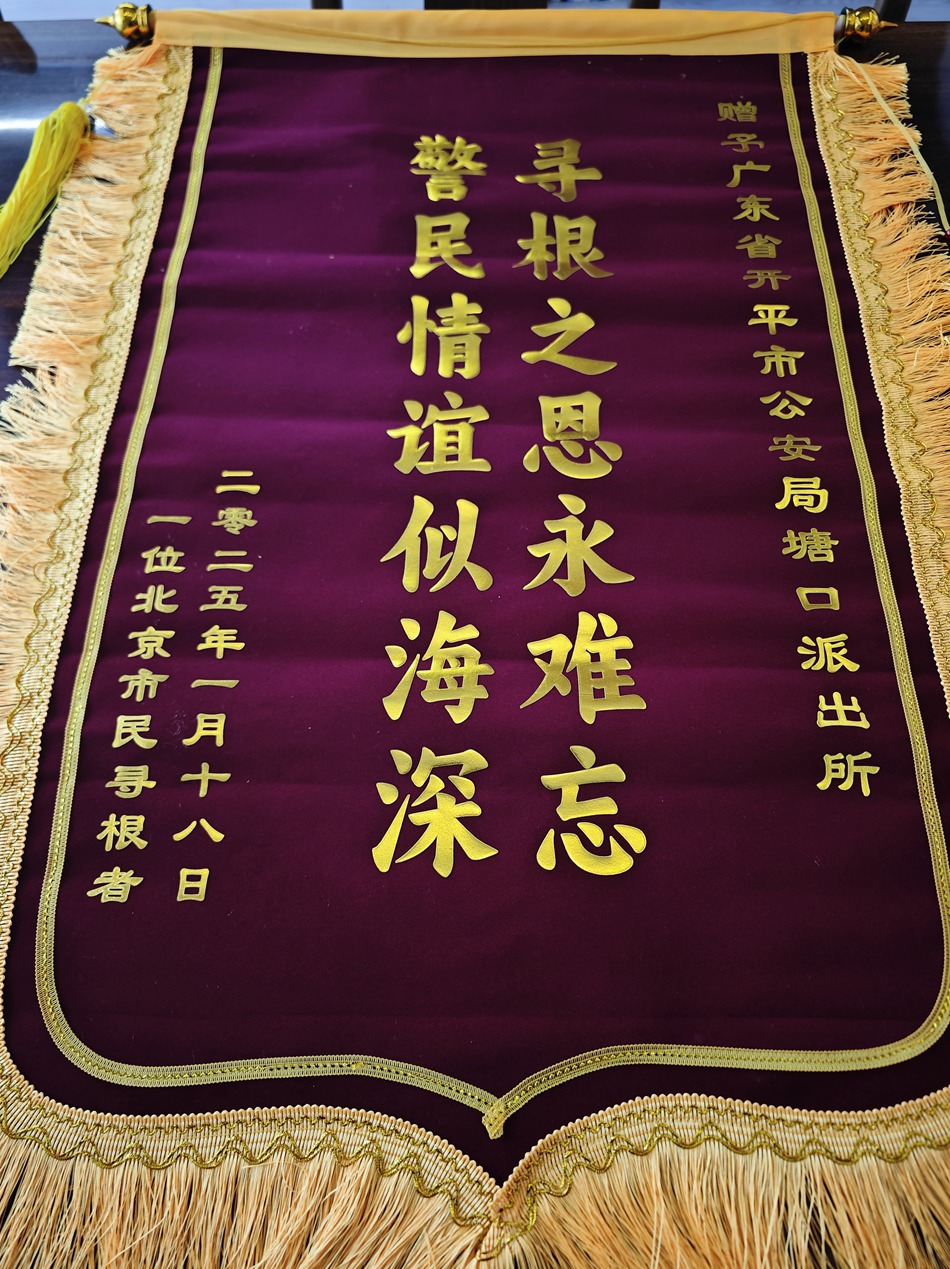 赠予广东省开平市公安局塘口派出所
寻根之恩永难忘
警民情谊似海深
二零二五年一月十八日
一位北京市民寻根者